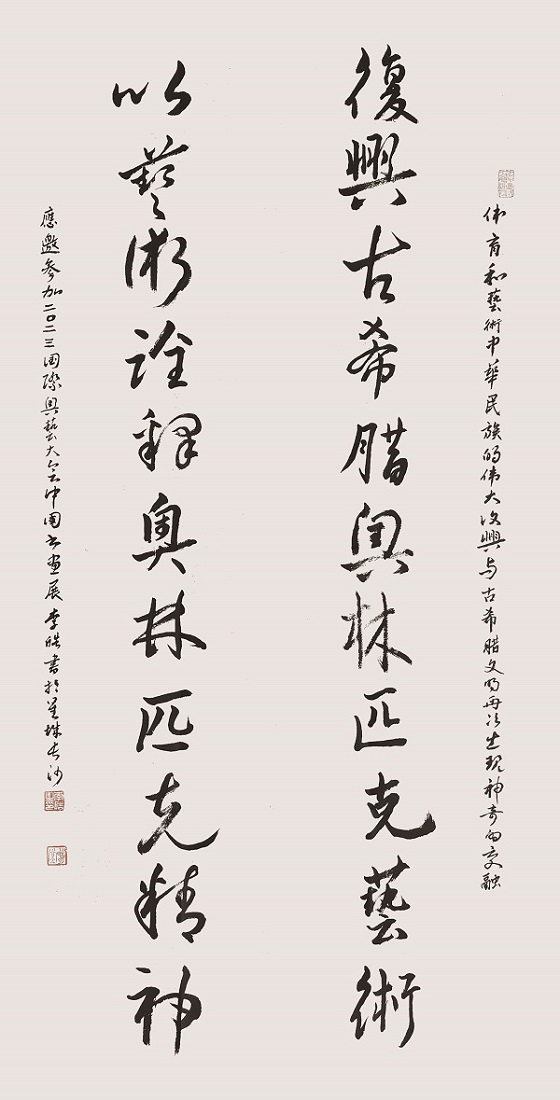 体育和藝術中華民族的伟大復興与古希腊文明再次出现神奇的交融
復興古希腊奥林匹克藝術
以藝術詮释奥林匹克精神
應邀参加二〇二三国際奥藝大会中国书画展 李皓書於星城长沙